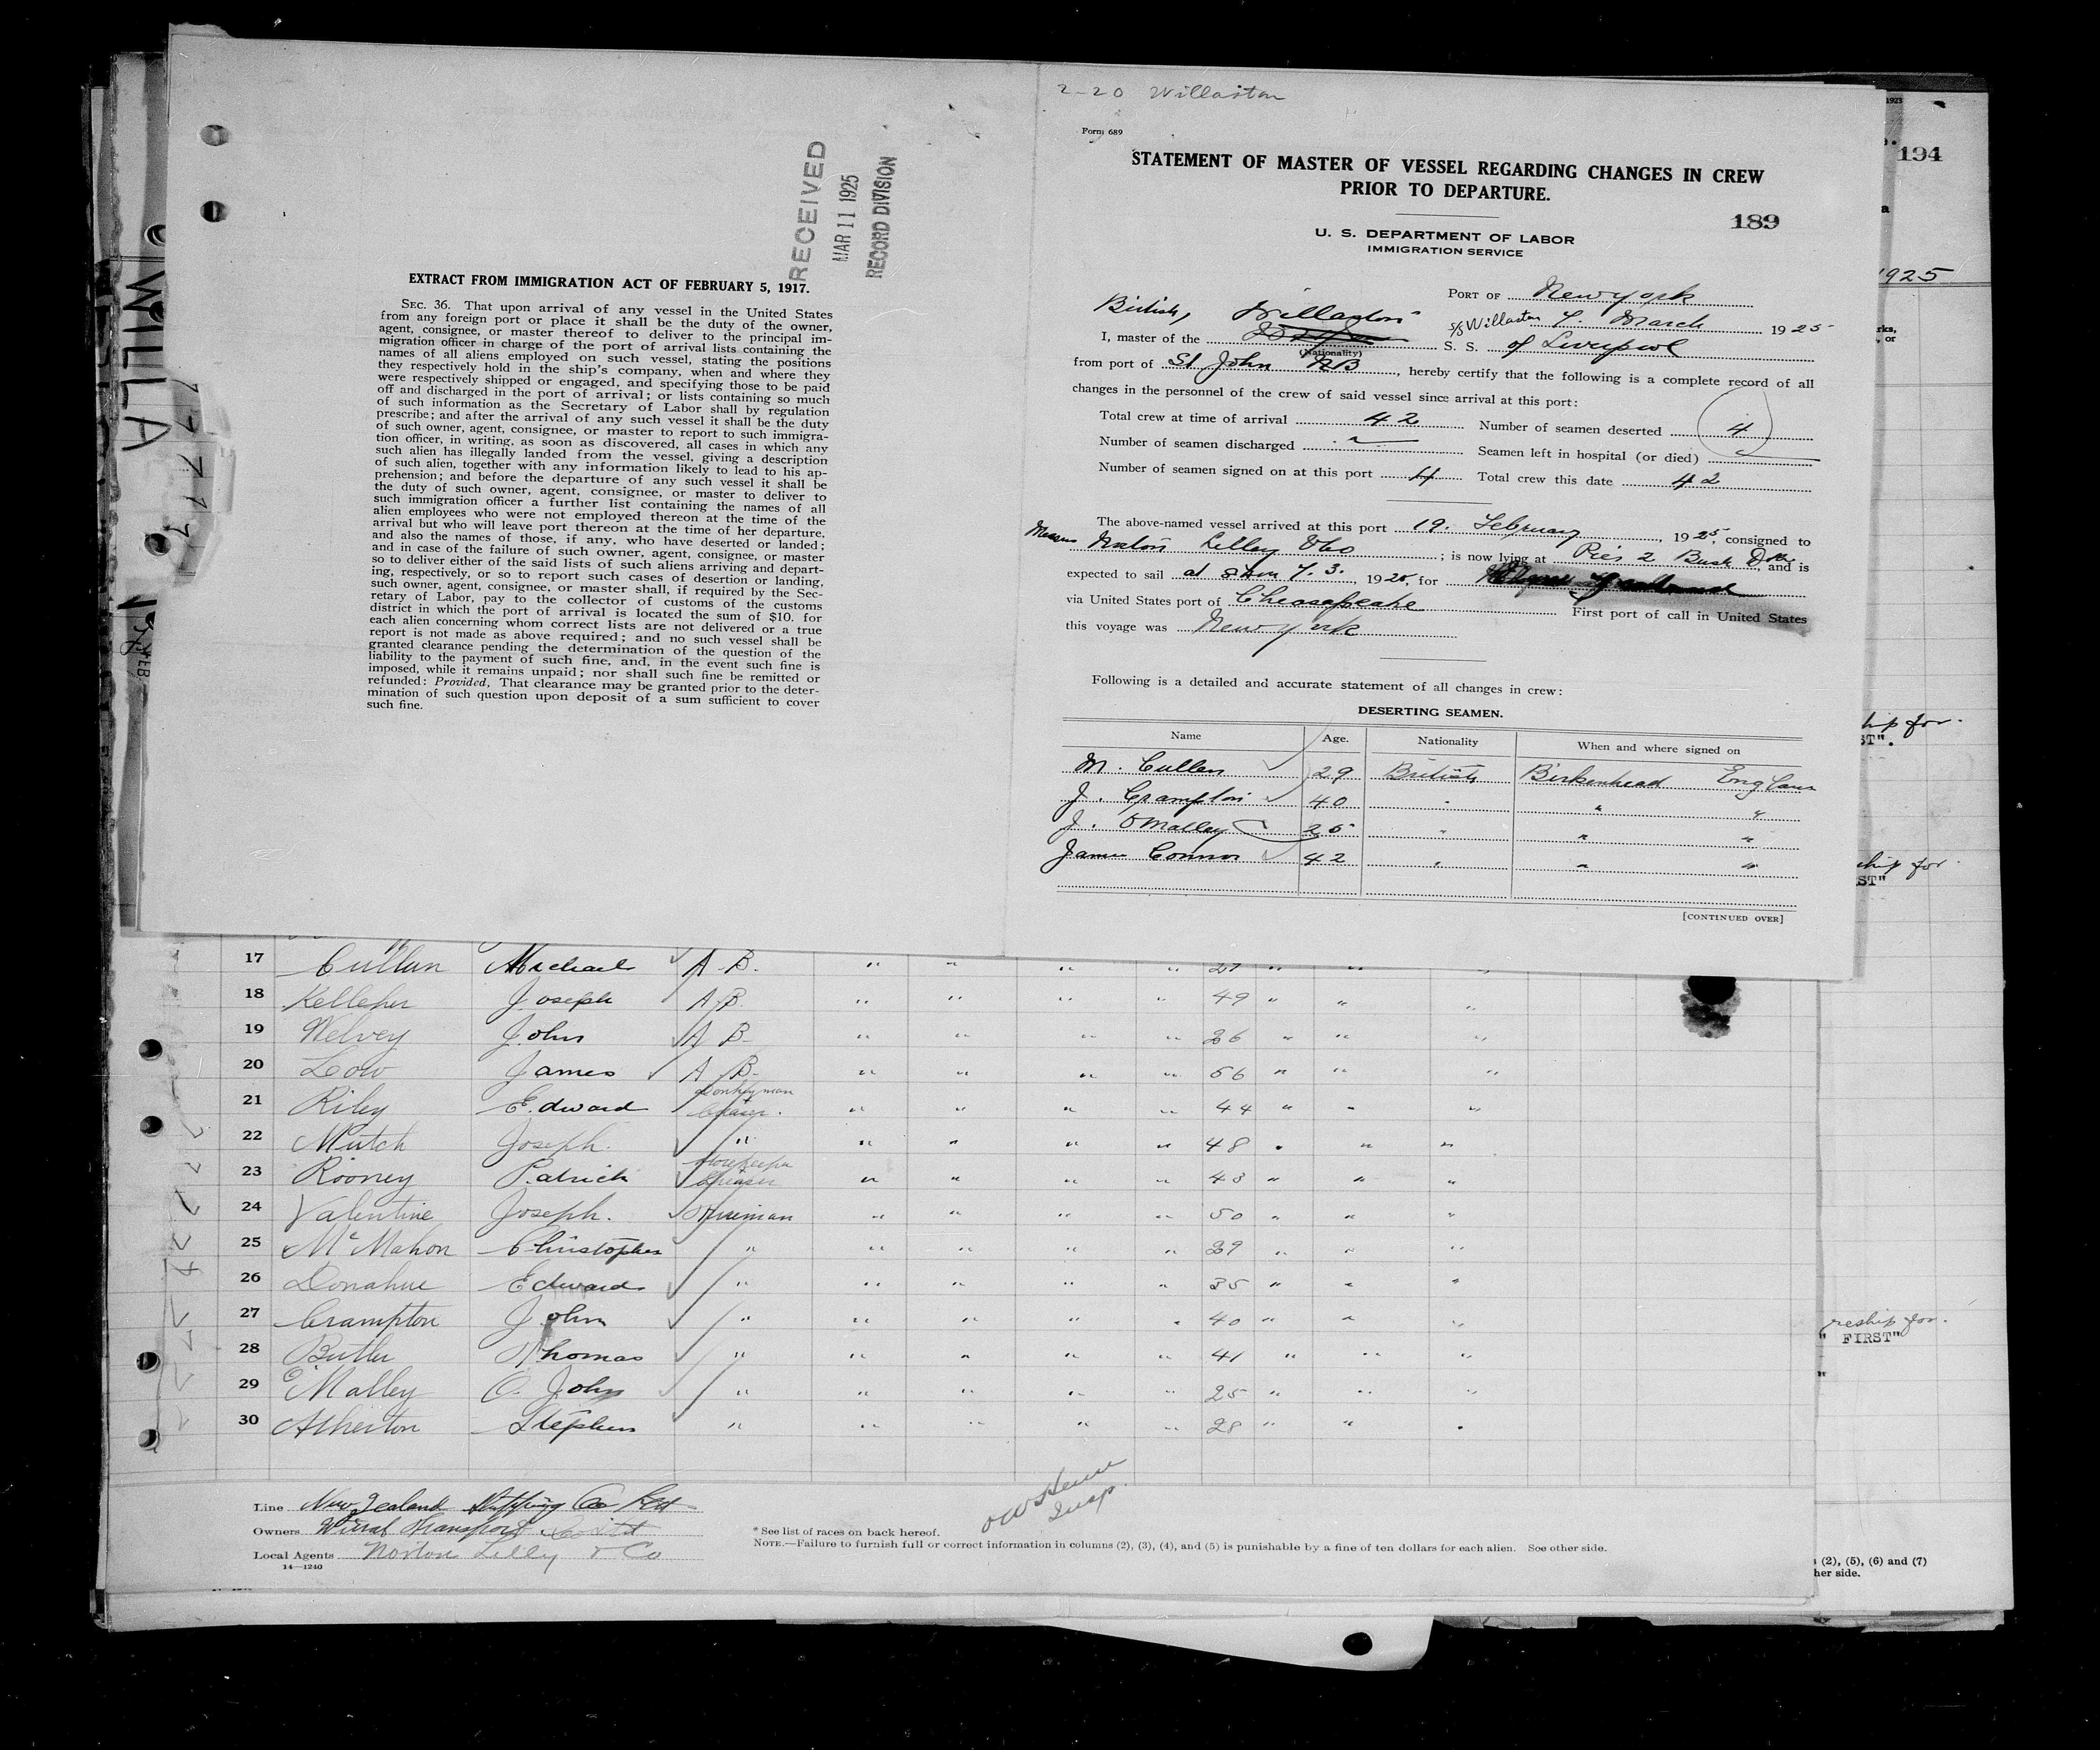 RECEIVED
MAR 11 1925
RECORD DIVISION
EXTRACT FROM IMMIGRATION ACT OF FEBRUARY 5, 1917.
SEC. 36. That upon arrival of any vessel in the United States
from any foreign port or place it shall be the duty of the owner,
agent, consignee, or master thereof to deliver to the principal im-
migration officer in charge of the port of arrival lists containing the
names of all aliens employed on such vessel, stating the positions
they respectively hold in the ship's company, when and where they
were respectively shipped or engaged, and specifying those to be paid
off and discharged in the port of arrival; or lists containing so much
of such information as the Secretary of Labor shall by regulation
prescribe; and after the arrival of any such vessel it shall be the duty
of such owner, agent, consignee, or master to report to such immigra-
tion officer, in writing, as soon as discovered, all cases in which any
such alien has illegally landed from the vessel, giving a description
of such alien, together with any information likely to lead to his ap-
prehension; and before the departure of any such vessel it shall be
the duty of such owner, agent, consignee, or master to deliver to
such immigration officer a further list containing the names of all
alien employees who were not employed thereon at the time of the
arrival but who will leave port thereon at the time of her departure,
and also the names of those, if any, who have deserted or landed;
and in case of the failure of such owner, agent, consignee, or master
so to deliver either of the said lists of such aliens arriving and depart-
ing, respectively, or so to report such cases of desertion or landing,
such owner, agent, consignee, or master shall, if required by the Sec-
retary of Labor, pay to the collector of customs of the customs
district in which the port of arrival is located the sum of $10. for
each alien concerning whom correct lists are not delivered or a true
report is not made as above required; and no such vessel shall be
granted clearance pending the determination of the question of the
liability to the payment of such fine, and, in the event such fine is
imposed, while it remains unpaid; nor shall such fine be remitted or
refunded: Provided, That clearance may be granted prior to the deter-
mination of such question upon deposit of a sum sufficient to cover
such fine.
2-20 Willaston
Form 689
STATEMENT OF MASTER OF VESSEL REGARDING CHANGES IN CREW
PRIOR TO DEPARTURE.
189
U. S. DEPARTMENT OF LABOR
IMMIGRATION SERVICE
PORT OF New York
British, Willaston S/S Willaston 7. March 1925
I, master of the S. S. of Liverpool
(Nationality)
from port of St John NB, hereby certify that the following is a complete record of all
changes in the personnel of the crew of said vessel since arrival at this port:
Total crew at time of arrival 42 Number of seamen deserted 4
Number of seamen discharged Seamen left in hospital (or died)
Number of seamen signed on at this port 4 Total crew this date 42
The above-named vessel arrived at this port 19. February, 1925, consigned to
Messrs Norton Lilley & Co; is now lying at Pier 2 Bush Dk, and is
expected to sail at 7. 3., 1925, for
via United States port of Cheasapeake First port of call in United States
this voyage was New York
Following is a detailed and accurate statement of all changes in crew:
DESERTING SEAMEN.
Name Age. Nationality When and where signed on
M. Cullen 29 British Birkenhead England
J. Crampton 40 " " "
J. OMalley 25 " " "
James Connor 42 " " "
[CONTINUED OVER]
194
1925
WILLA
7 7 7 7
17 Cullen Michael A.B. " " " " " " "
18 Kelleher Joseph A.B. " " " " 49 " " "
19 Welvey John A.B. " " " " 26 " " "
20 Low James A.B. " " " " 56 " " "
21 Riley Edward Donkeyman Greaser. " " " " 44 " " "
22 Mutch Joseph. " " " " " 48 " " "
23 Rooney Patrick Storekeeper Greaser " " " " 43 " " "
24 Valentine Joseph. Fireman " " " " 50 " " "
25 McMahon Christopher " " " " " 39 " " "
26 Donahue Edward " " " " " 35 " " "
27 Crampton John " " " " " 40 " " "
28 Butler Thomas " " " " " 41 " " "
29 O'Malley O. John " " " " " 25 " " "
30 Atherton Stephen " " " " " 28 " " "
Line New Zealand Shipping Co Ltd
Owners Wirral Transport Co Ltd
Local Agents Norton Lilly & Co
14—1240
* See list of races on back hereof.
NOTE.—Failure to furnish full or correct information in columns (2), (3), (4), and (5) is punishable by a fine of ten dollars for each alien. See other side.
Insp.
hip for
ST".
ship for
ST"
reship for
" FIRST"
"
(2), (5), (6) and (7)
her side.